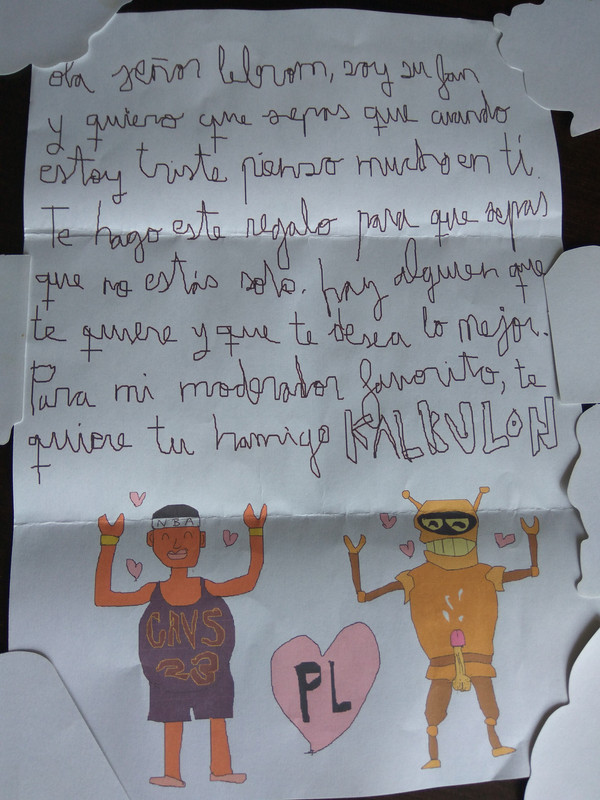 Ola señor lebrom, soy su fan
y quiero que sepas que cuando
estoy triste pienso mucho en tí.
Te hago este regalo para que sepas
que no estás solo. hay alguien que
te quiere y que te desea lo mejor.
Para mi moderador favorito, te
quiere tu hamigo KALKULON
NBA
CAVS
23
PL